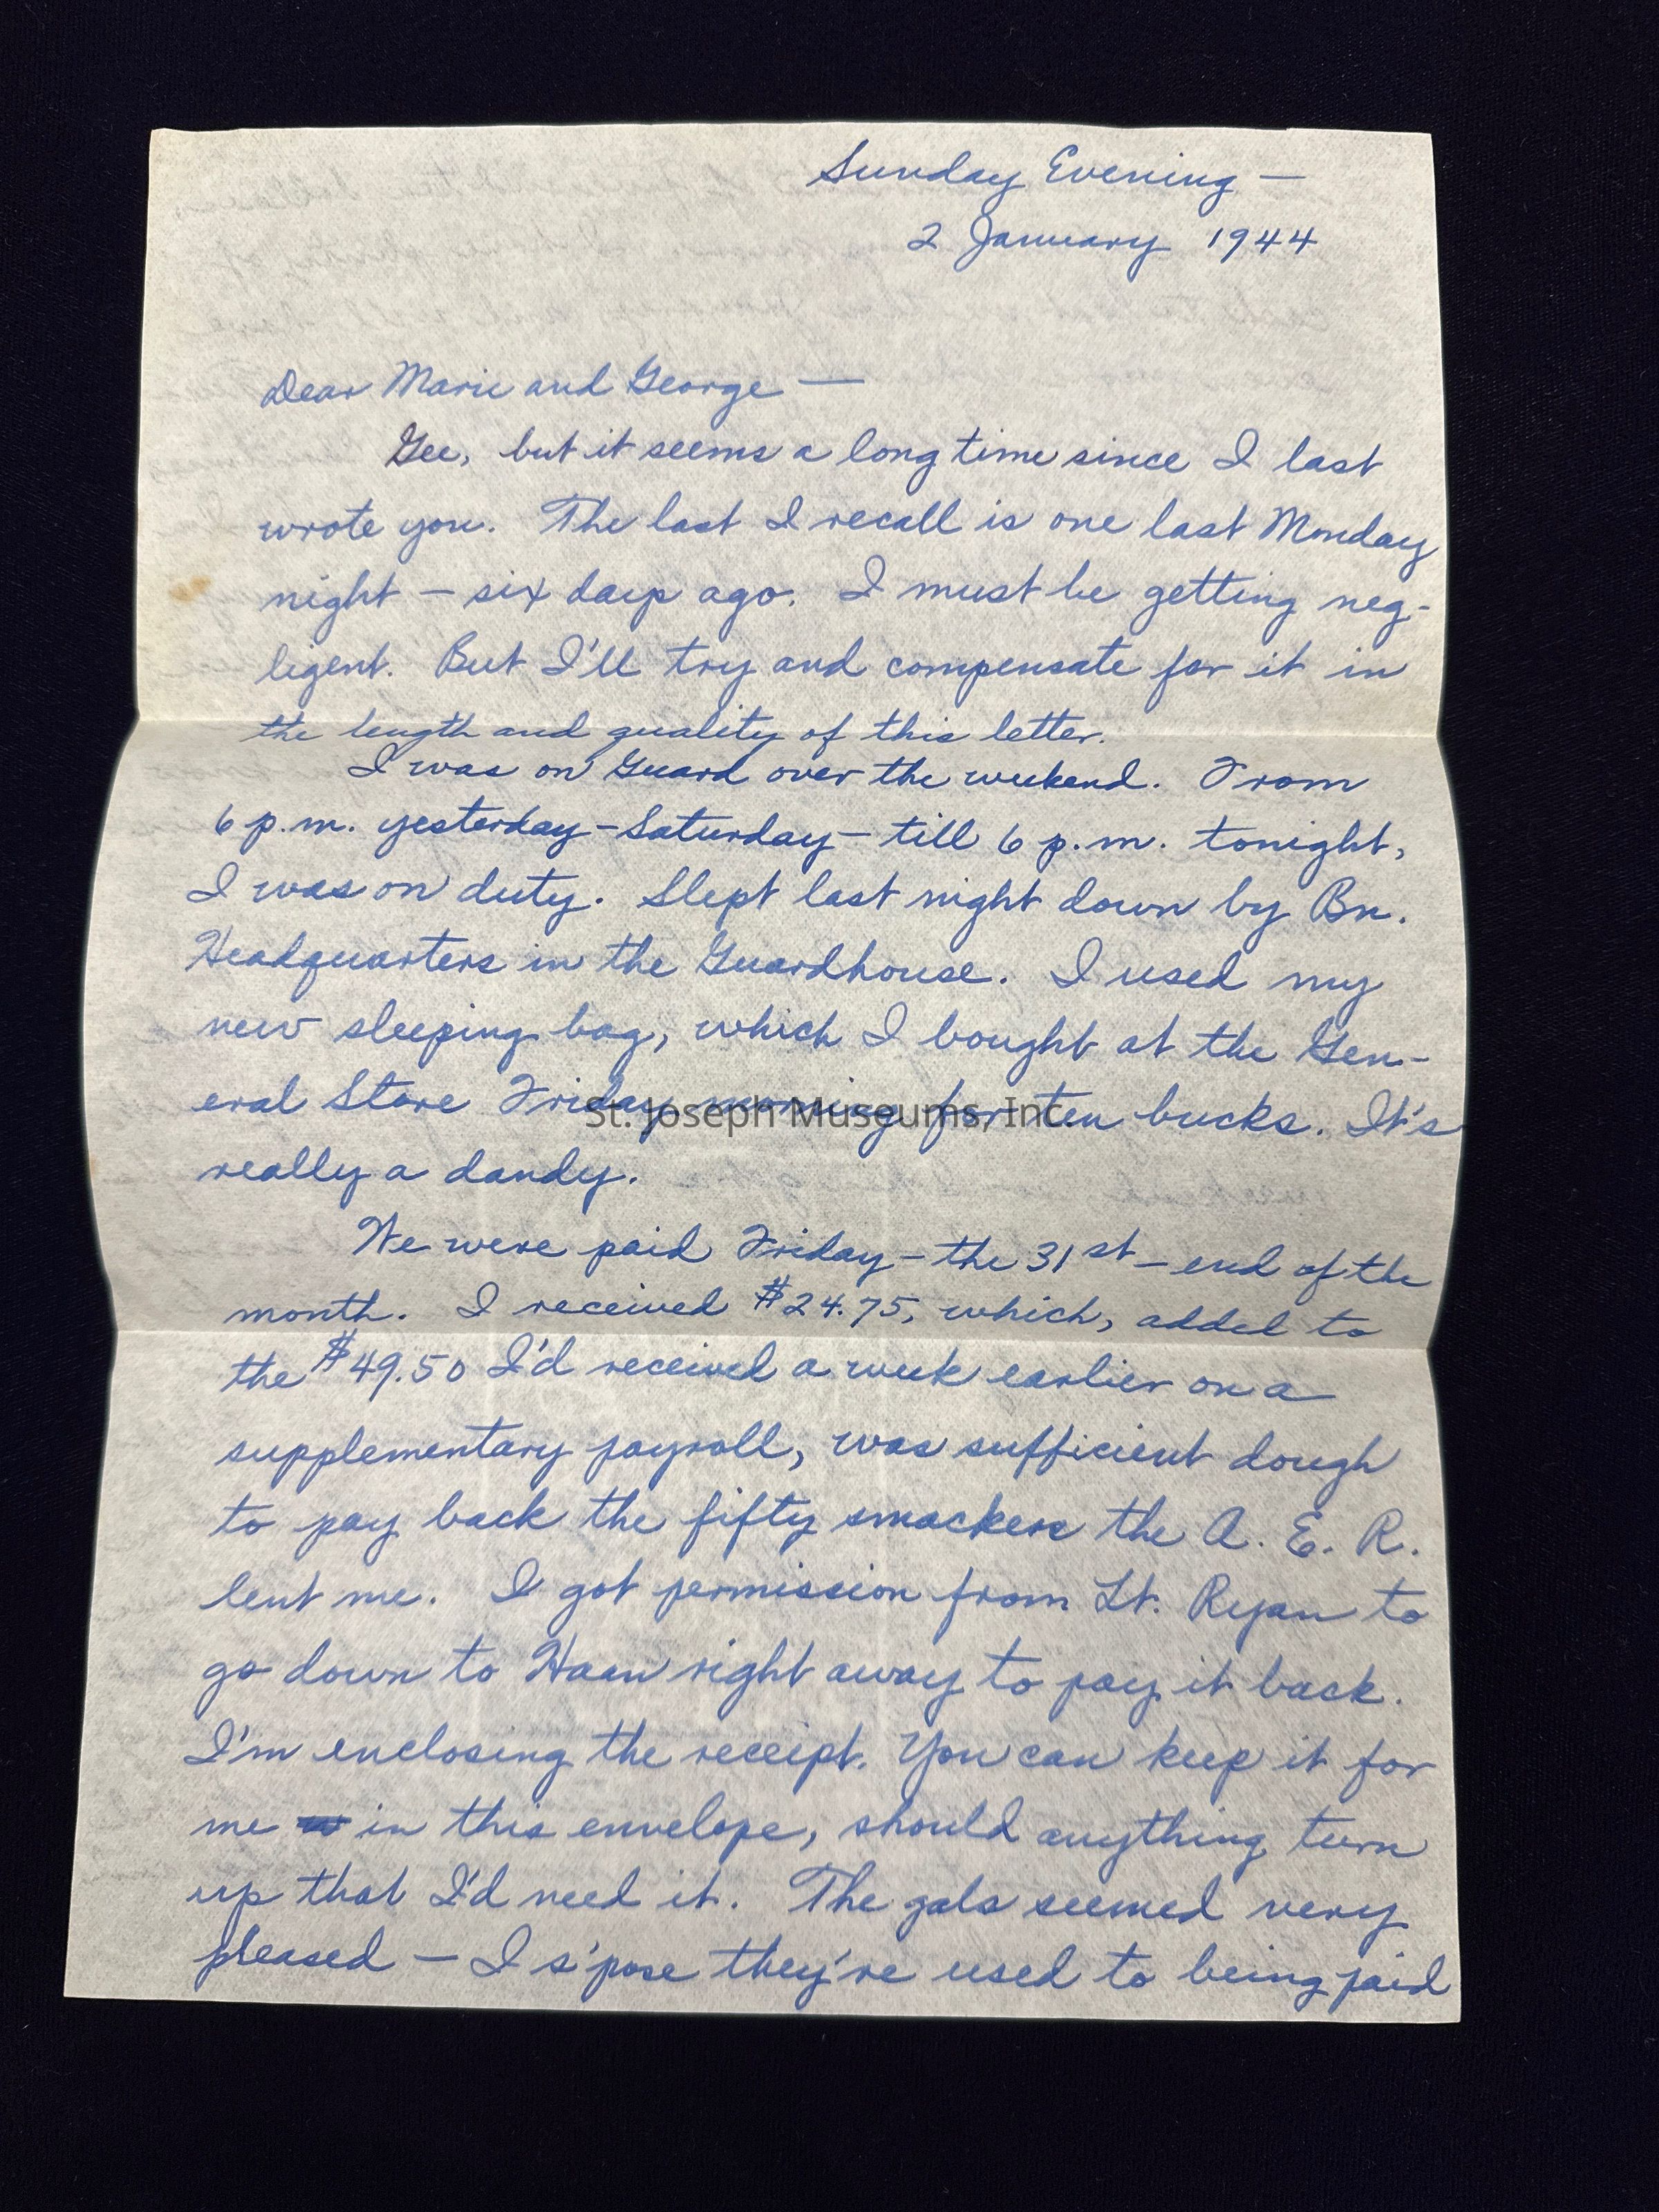 Sunday Evening —
2 January 1944
Dear Marie and George —
Gee, but it seems a long time since I last
wrote you. The last I recall is one last Monday
night — six days ago. I must be getting neg-
ligent. But I'll try and compensate for it in
the length and quality of this letter.
I was on Guard over the weekend. From
6 p.m. yesterday — Saturday — till 6 p.m. tonight,
I was on duty. Slept last night down by Bn.
Headquarters in the Guardhouse. I used my
new sleeping bag, which I bought at the Gen-
eral Store Friday morning for ten bucks. It's
St. Joseph Museums, Inc.
really a dandy.
We were paid Friday — the 31st — end of the
month. I received $24.75, which, added to
the $49.50 I'd received a week earlier on a
supplementary payroll, was sufficient dough
to pay back the fifty smackers the A. E. R.
lent me. I got permission from Lt. Ryan to
go down to Haan right away to pay it back.
I'm enclosing the receipt. You can keep it for
me in this envelope, should anything turn
up that I'd need it. The gals seemed very
pleased — I s'pose they're used to being paid